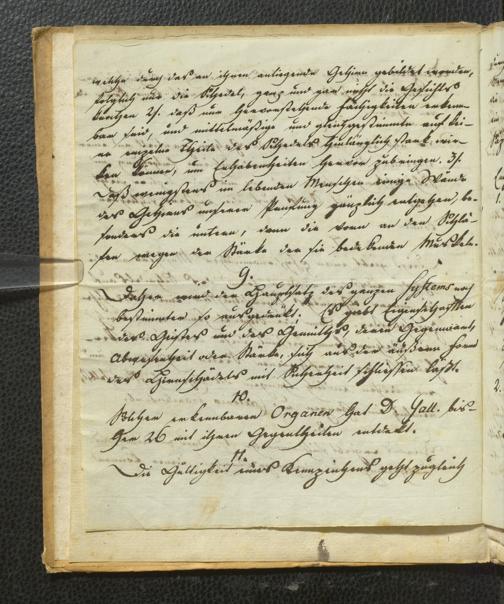 welche durch das an ihnen anliegende Gehirn gebildet werden,
folglich nur die Schedel, ganz und gar nicht die Gesichts
knochen 2t. daß nur hervorstechende Fähigkeiten erkenn-
bar sind, und mittelmäßige und gleichgestimmte auf kei-
ne einzelne Theile des Schedels hinlänglich stark wir-
ken können, um Erhabenheiten hervor zubringen. 3t.
Daß wenigstens im lebenden Menschen einige Wände
des Gehirns unserer Prüfung gänzlich entgehen, be-
sonders die untern, dann die vorn an den Schlä-
fen wegen der Stärke der sie bedekenden Muskeln.
9.
Daher wird der Hauptsatz des ganzen Systems noch
bestimmter so ausgedrükt. Es gibt Eigenschaften
des Geistes und des Gemüthes, deren Gegenwart,
Abwesenheit oder Stärke, sich aus der äußern Form
des Hirnschädels mit Sicherheit schließen läßt.
10.
Solcher erkennbaren Organen hat D. Gall. bis-
her 26 mit ihren Gegentheilen entdekt.
11.
Die Gültigkeit eines Kennzeichens geht zugleich